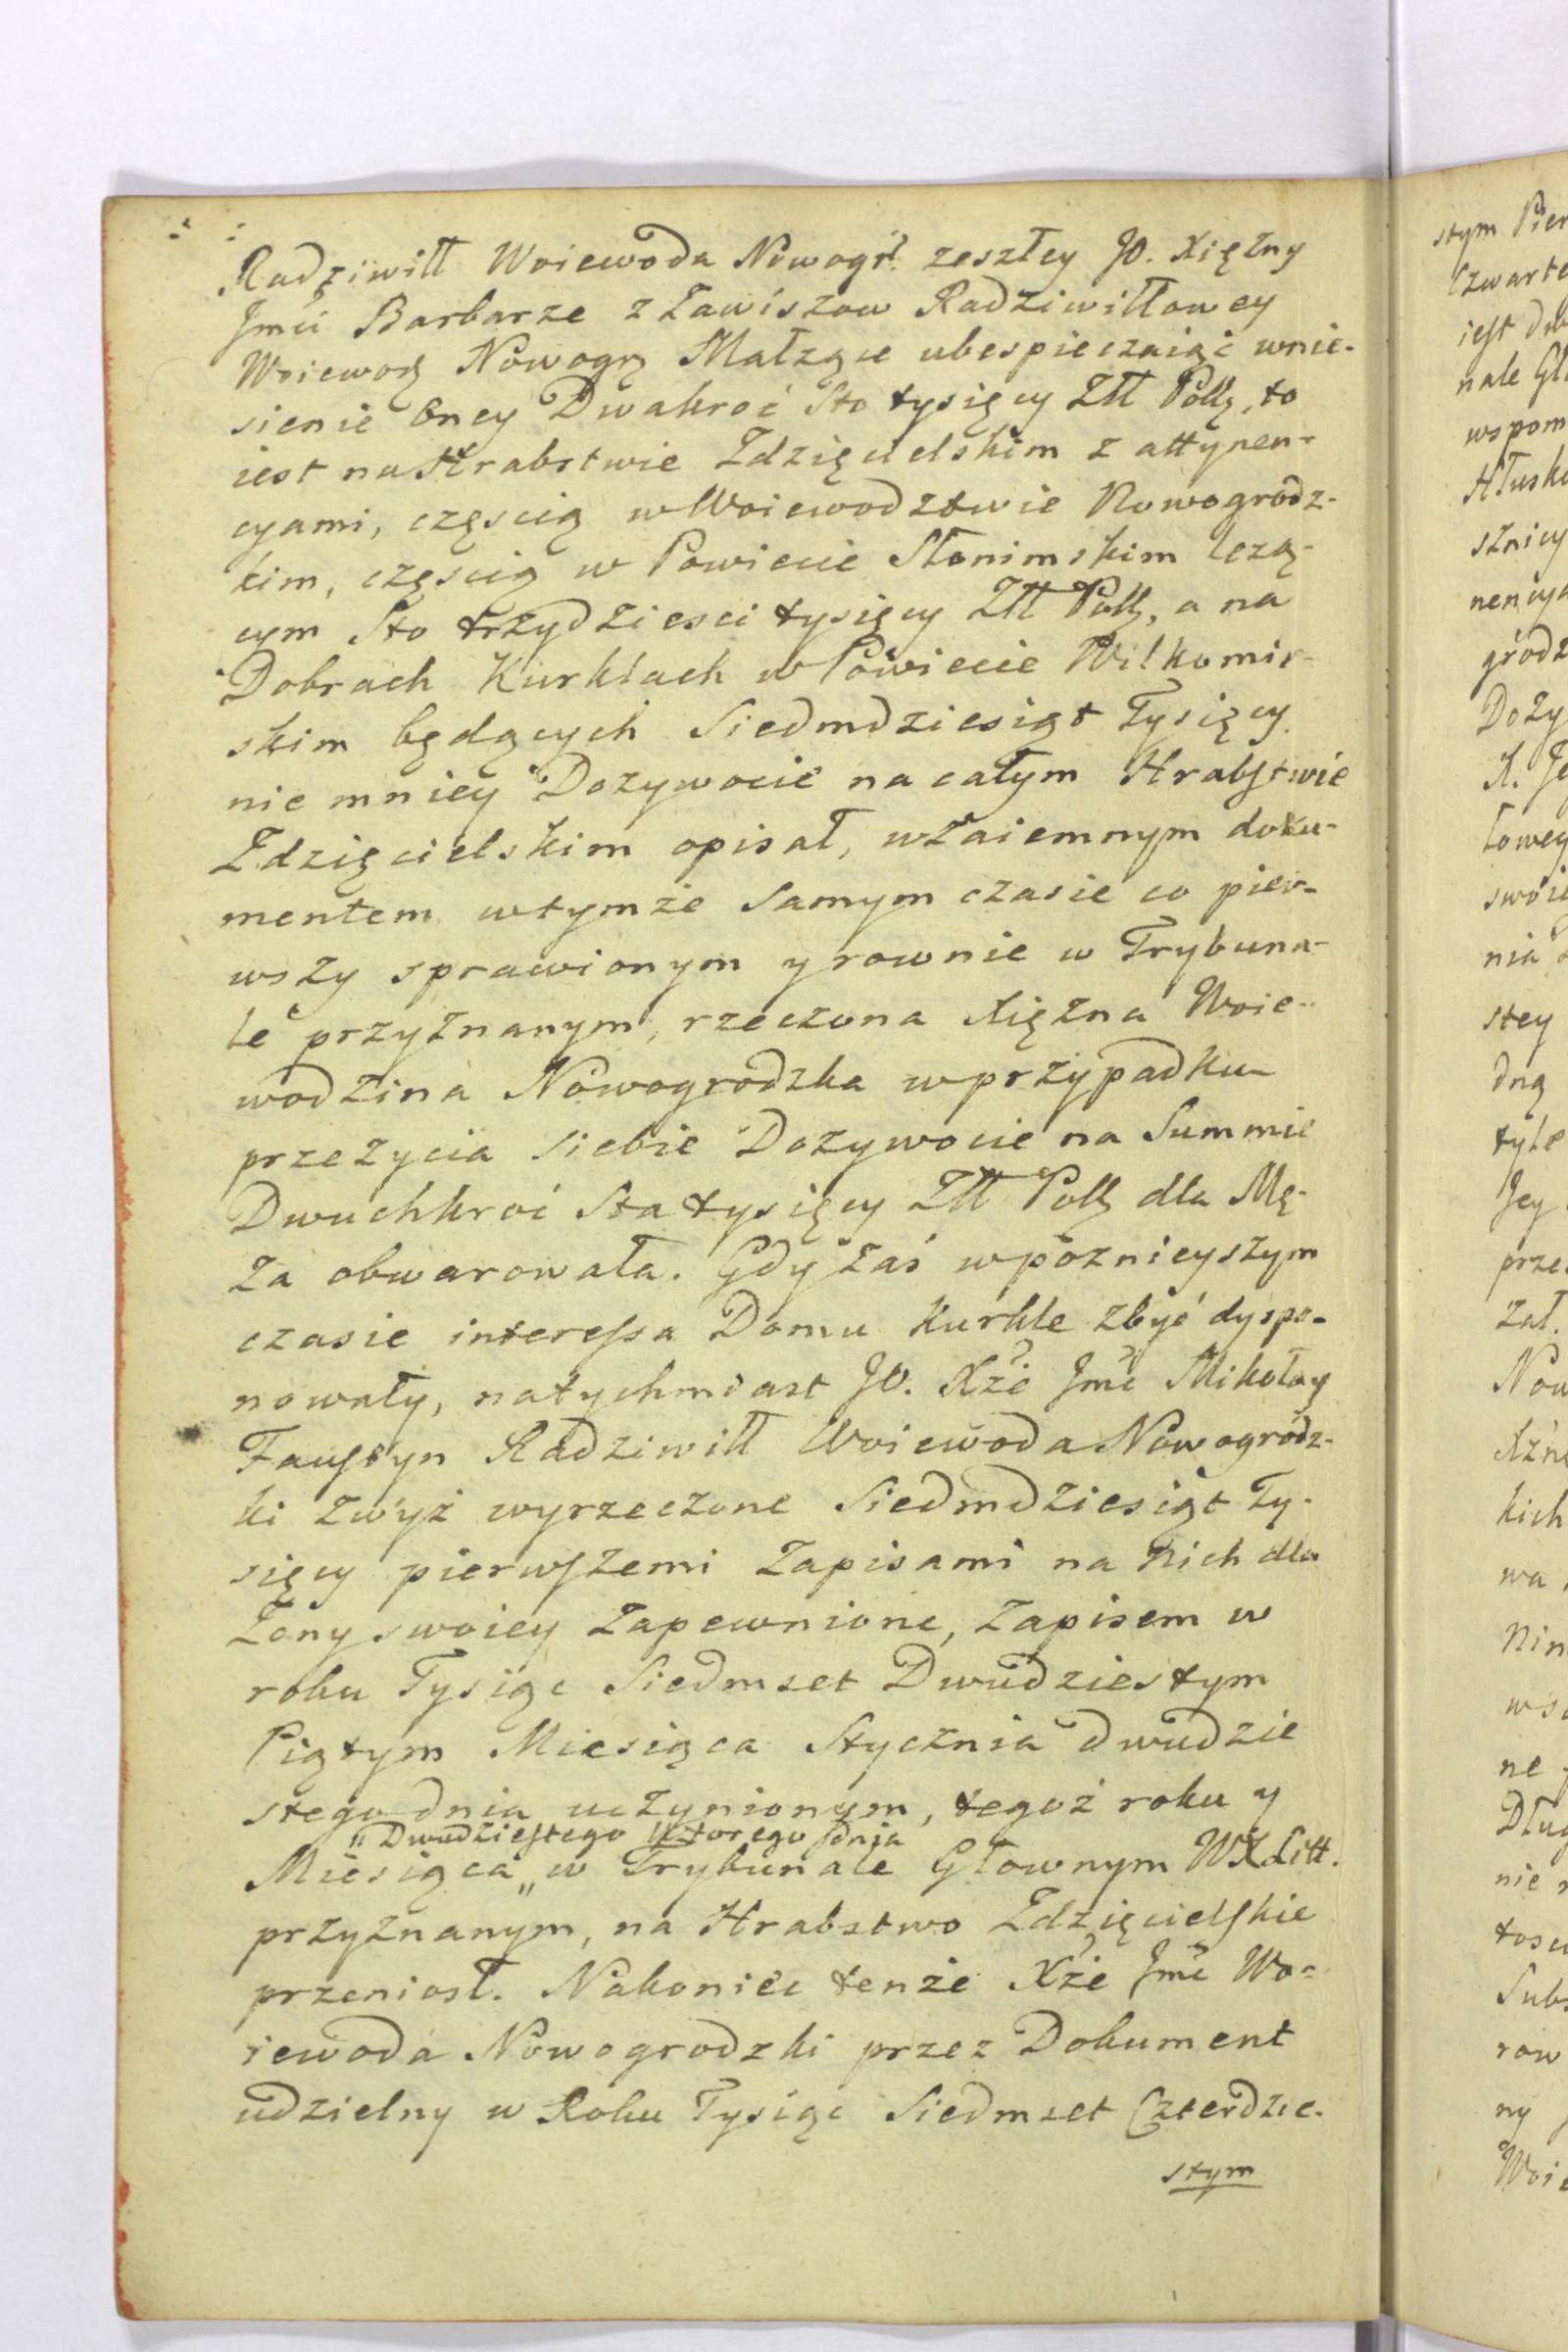 Radziwiłł Woiewoda Nowogr. zeszłey JO. Xiężny
Jmci Barbarze z Zawiszow Radziwiłłowey
Woiewodz Nowogr Małżące ubespieczaiąc wnie-
sienie oney Dwakroć Sto tysięcy Złł Polk, to
iest na Hrabstwie Zdzięcielskim z attynen-
cyami, częscią w Woiewodztwie Nowogrodz-
kim, częscią w Powiecie Słonimskim leżą-
cym Sto trzydziesci tysięcy Złł Polk, a na
Dobrach Kurklach w Powiecie Wiłkomir-
skim będących Siedmdziesiąt Tysięcy
nie mniey Dozywocie na całym Hrabstwie
Zdzięcielskim opisał, wzaiemnym doku-
mentem w tymże Samym czasie co pier-
wszy sprawionym y rownie w Trybuna-
le przyznanym, rzeczona Xiężna Woie-
wodzina Nowogrodzka w przypadku
przeżycia Siebie Dożywocie na Summie
Dwuchkroć Sta tysięcy Złł Polk dla Mę-
ża obwarowała. Gdy zaś w poznieyszym
czasie interessa Domu Kurkle zbyć dyspo-
nowały, natychmiast JO. Xże Jmć Mikołay
Faustyn Radziwiłł Woiewoda Nowogródz-
ki zwyż wyrzeczone Siedmdziesiąt Ty-
sięcy pierwszemi Zapisami na Nich dla
Żony swoiey Zapewnione, Zapisem w
roku Tysiąc Siedmset Dwudziestym
Piątym Miesiąca Stycznia dwudzie
stego dnia uczynionym, tegoż roku y
" Dwudziestego Wtorego dnia
Miesiąca " w Trybunale Głownym WXLitt.
przyznanym, na Hrabstwo Zdzięcielskie
przeniosł. Nakoniec tenże Xże Jmć Wo-
iewoda Nowogrodzki przez Dokument
udzielny w Roku Tysiąc Siedmset Czterdzie-
stym
stym Pier
Czwarte
iest
nale Gł
wspom
Hłusk
nency
grodz
Doży
X. Je
łowey
nia
stey
dną
tyle
Jey
prze
żał.
Now
kich
wa
Nin
ne
Dług
nie
Subs
row
ny
Woie